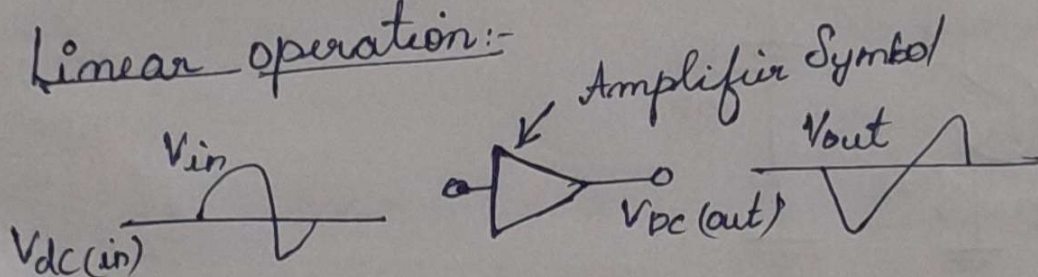 Linear operation:-
Amplifier Symbol
Vin
Vout
Vdc(in)
VDC (out)